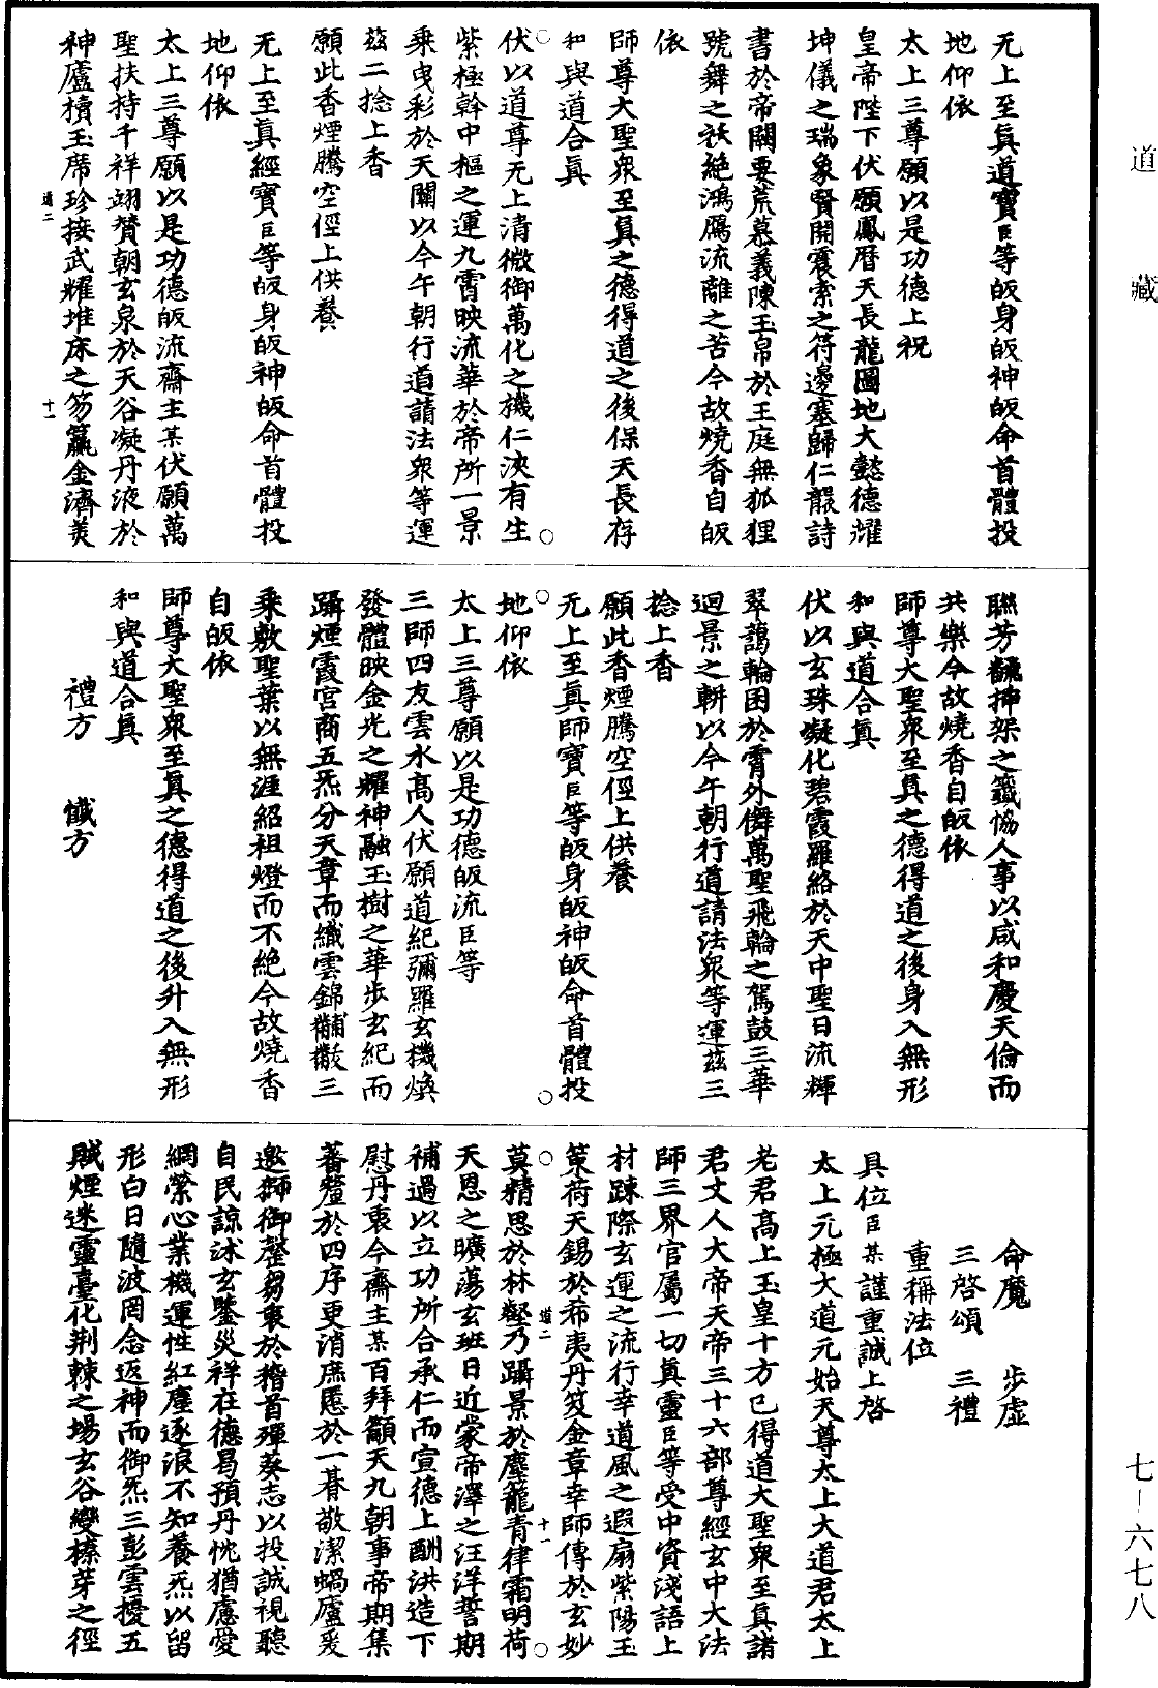 道藏
无上至真道寶臣等皈身皈神皈命首體投
地仰依
太上三尊願以是功德上祝
皇帝陛下伏願鳳曆天長龍圖地大懿德耀
坤儀之瑞象賢開震索之符邊塞歸仁罷詩
書於帝闕要荒慕義陳玉帛於王庭無狐狸
號舞之祅絕鴻鴈流離之苦今故燒香自皈
依
師尊大聖眾至真之德得道之後保天長存
和與道合真
伏以道尊无上清微御萬化之機仁浹有生
紫極斡中樞之運九霄映流華於帝所一景
乘曳彩於天關以今午朝行道請法眾等運
茲二捻上香
願此香煙騰空徑上供養
无上至真經寶臣等皈身皈神皈命首體投
地仰依
太上三尊願以是功德皈流齋主某伏願萬
聖扶持千祥翊贊朝玄泉於天谷凝丹液於
神廬積玉席珍接武耀堆床之笏籯金濟美
道二 十一
聯芳翻插架之籤恊人事以咸和慶天倫而
共樂今故燒香自皈依
師尊大聖眾至真之德得道之後身入無形
和與道合真
伏以玄珠凝化碧霞羅絡於天中聖日流輝
翠藹輪囷於霄外儛萬聖飛輪之駕鼓三華
迴景之軿以今午朝行道請法眾等運茲三
捻上香
願此香煙騰空徑上供養
无上至真師寶臣等皈身皈神皈命首體投
地仰依
太上三尊願以是功德皈流臣等
三師四友雲水高人伏願道紀彌羅玄機煥
發體映金光之耀神融玉樹之華步玄紀而
躡煙霞宮商五炁分天章而織雲錦黼黻三
乘敷聖葉以無涯紹祖燈而不絕今故燒香
自皈依
師尊大聖眾至真之德得道之後升入無形
和與道合真
禮方 懺方
命魔 步虛
三啓頌 三禮
重稱法位
具位臣某謹重誠上啓
太上元極大道元始天尊太上大道君太上
老君高上玉皇十方已得道大聖眾至真諸
君丈人大帝天帝三十六部尊經玄中大法
師三界官屬一切真靈臣等受中資淺語上
材踈際玄運之流行幸道風之遐扇紫陽玉
策荷天錫於希夷丹笈金章幸師傳於玄妙
道二 十一
莫精思於林壑乃躡景於塵籠青律霜明荷
天恩之曠蕩玄班日近蒙帝澤之汪洋誓期
補過以立功所合承仁而宣德上酬洪造下
慰丹衷今齋主某百拜籲天九朝事帝期集
蕃釐於四序更消庶慝於一朞敬潔蝸廬爰
邀獅御罄芻衷於稽首殫葵志以投誠視聽
自民諒沭玄鑒災祥在德曷預丹忱猶慮愛
網縈心業機運性紅塵逐浪不知養炁以留
形白日隨波罔念返神而御炁三彭雲擾五
賊煙迷靈臺化荆棘之場玄谷變榛芽之徑
七－六七八